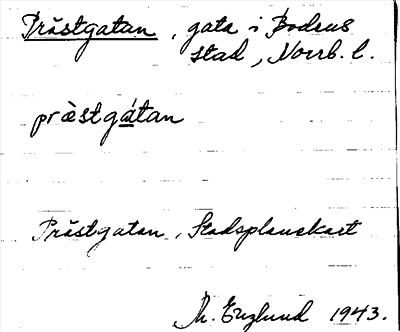 Prästgatan, gata i Bodens
stad, Norrb. l.
præ̀stgátan
Prästgatan, Stadsplanekart
Th. Englund 1943.